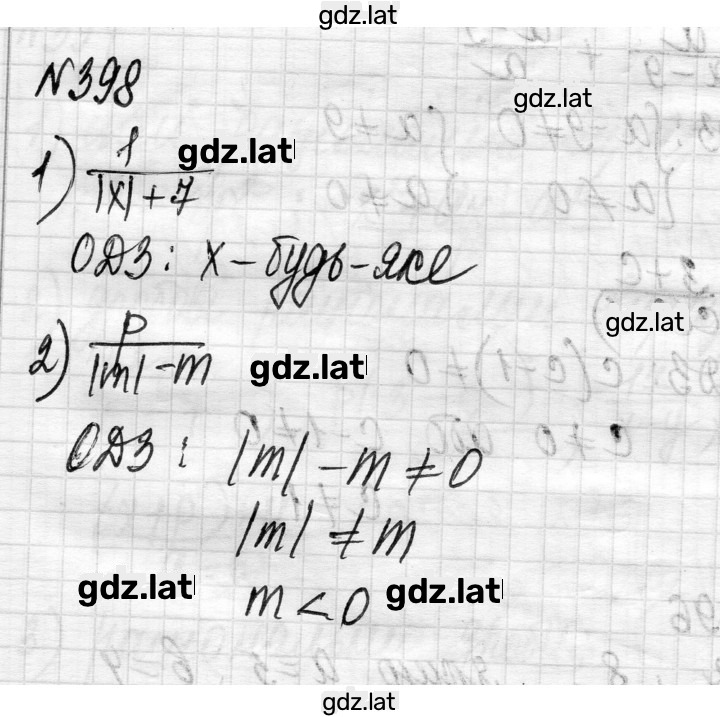 gdz.lat
№398
gdz.lat
1) 1/(|x|+7) gdz.lat
ОДЗ: x - будь-яке
gdz.lat
2) p/(|m|-m) gdz.lat
ОДЗ: |m| - m ≠ 0
|m| ≠ m
gdz.lat m < 0 gdz.lat
gdz.lat